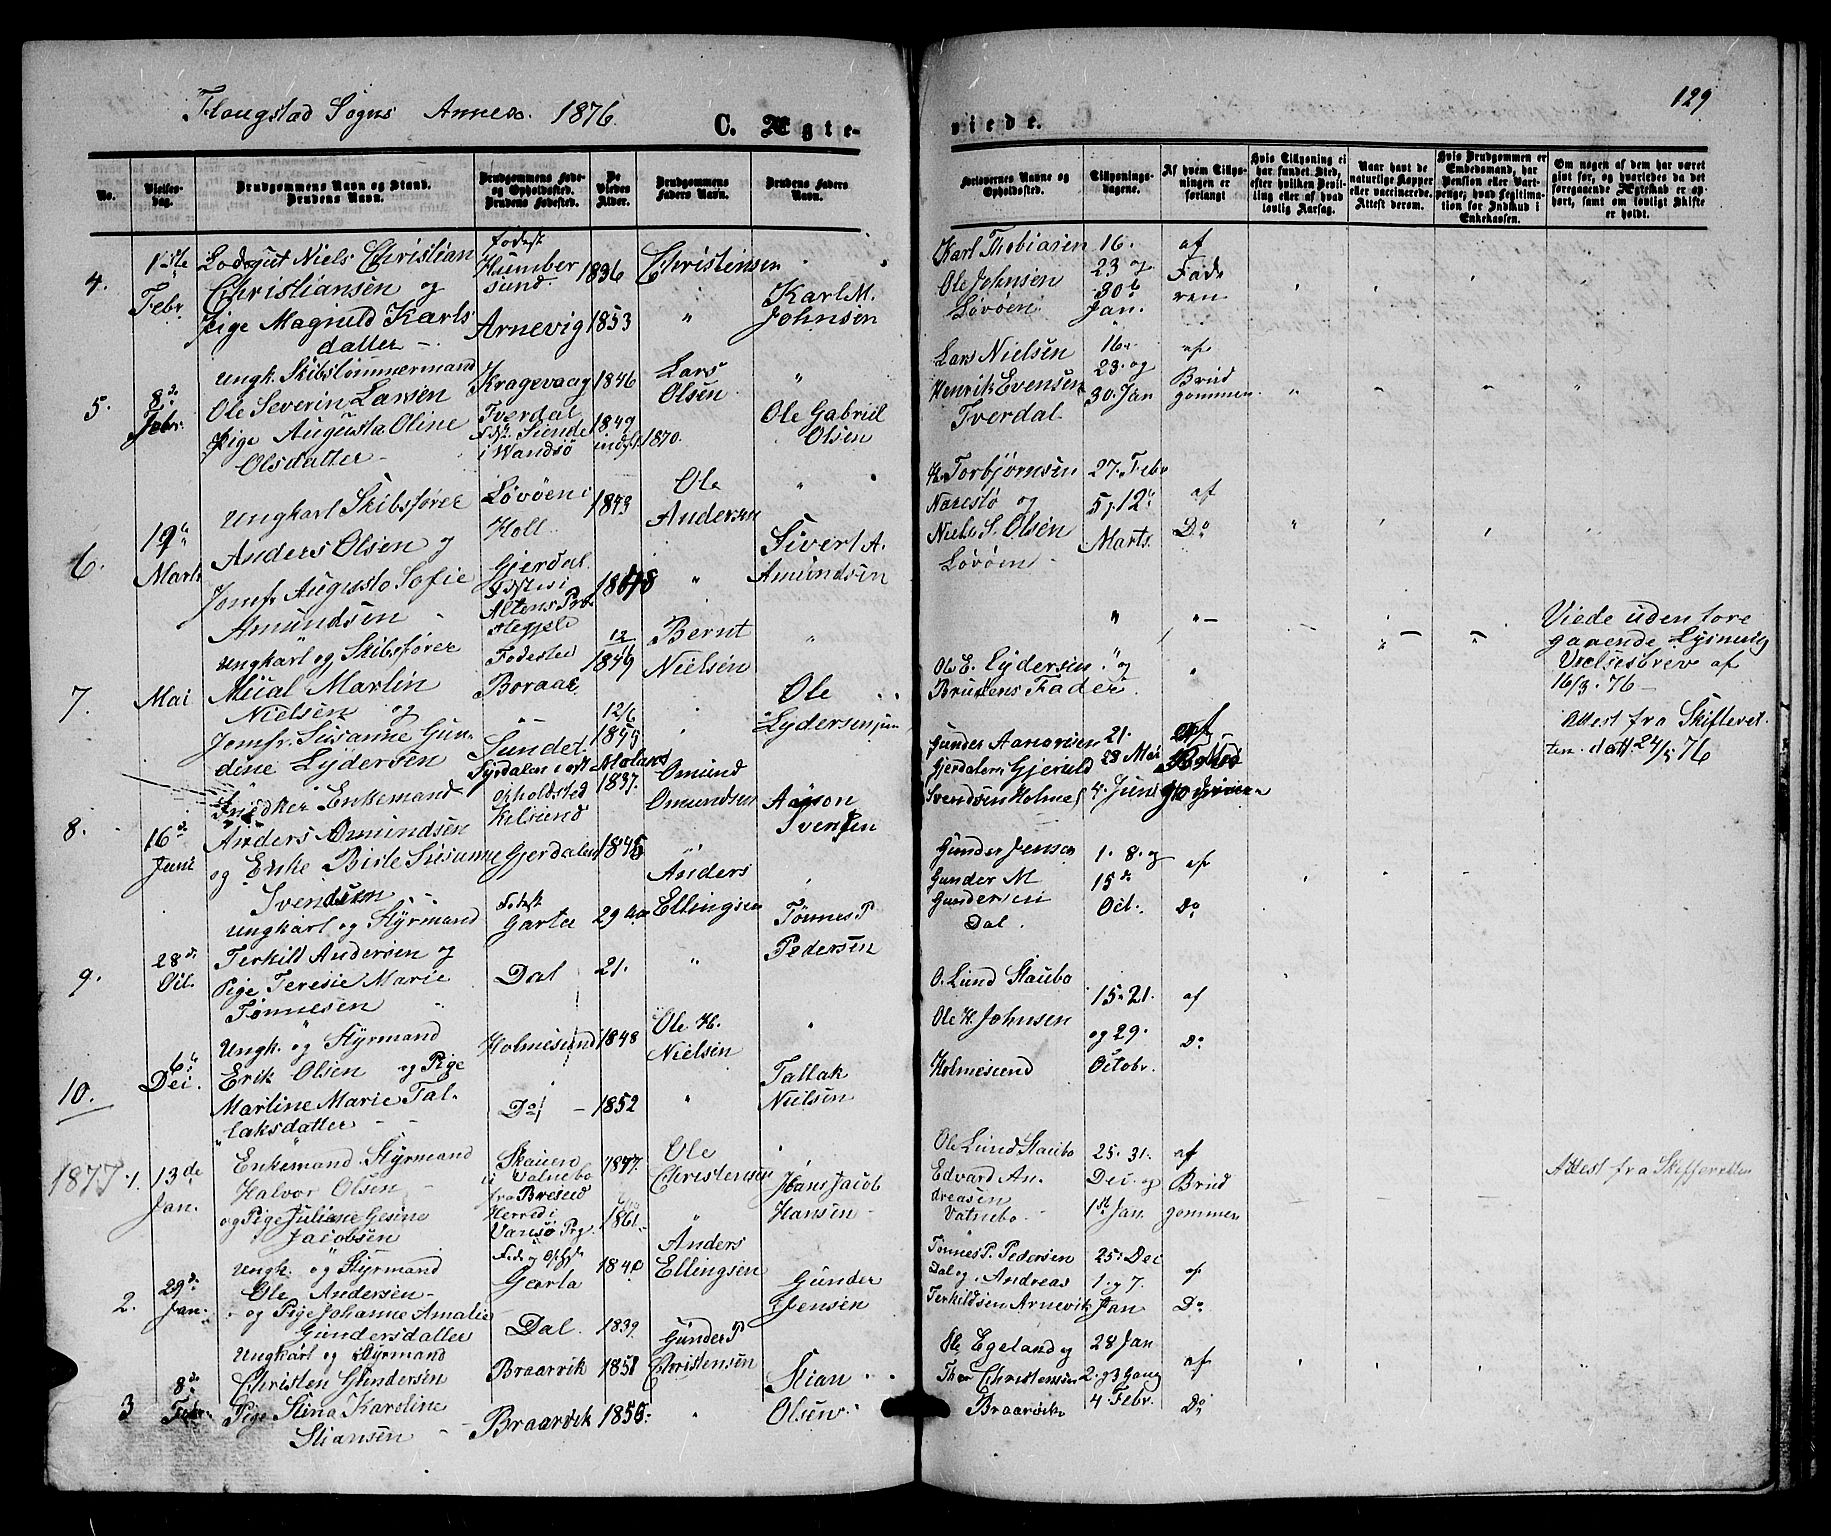 Flougstad Sogns Annex. 1876.
C. Ægte-
viede.
129
No.
Vielses-
dag.
Brudgommens Navn og Stand.
Brudens Navn.
Brudgommens Føde-
og Opholdssted.
Brudens Fødested.
De
Viedes
Alder.
Brudgommens
Faders Navn.
Brudens Faders
Navn.
Forlovernes Navne og
Opholdssted.
Tillysnings-
dagene.
Af hvem Tillys-
ningen er
forlangt
Hvis Tillysning ei
har fundet Sted,
efter hvilken Bevil-
ling eller af hvad
lovlig Aarsag.
Naar havt de
naturlige Kopper
eller vaccinerede.
Attest derom.
Hvis Brudgommen er
Embedsmand, har
Pension eller Vart-
penge; hvad Legitima-
tion for Indskud i
Enkekassen.
Om nogen af dem har været
gift før, og hvorledes da det
foregaaende Ægteskab er op-
hørt, samt om lovligt Skifte
er holdt.
4.
1ste
Febr.
Lodsgut Niels Christian
Christiansen og
Pige Magnild Karls
datter
Fødest
Humber
sund.
Arnevig
1836
1853
Christensen
Karl M.
Johnsen
Karl Thobiasen
Ole Johnsen
Løvøen
16.
23 og
30te
Jan.
af
Fade
ren
5.
8de
Febr.
Ungk. Skibstømmermand
Ole Severin Larsen
Pige Augusta Oline
Olsdatter
Kragevaag
Tverdal
i Vandsø
1846
1849
1870.
Lars
Olsen
Ole Gabriel
Olsen
Lars Nielsen
Henrik Evensen
Tverdal
16.
23. og
30. Jan
af
Brud
gommen
6.
19de
Marts
Ungkarl Skibsfører
Anders Olsen og
Jomfr. Augusta Sofie
Amundsen
Løvøen i
Holt
Gjerdal
Altens Præ
stegjeld
1843
1848
Ole
Andersen
Sivert A.
Amundsen
H. Torbjørnsen
Narestø og
Niels S. Olsen
Løvøen
27. Febr
5, 12te
Marts.
af
Do
7.
Mai
Ungkarl og Skibsfører
Martin
Nielsen og
Jomfr. Susanne Gun-
dine Lydersen
Fødested
Boraas
Sundet
12/11
1849
12/6
1849
Bernt
Nielsen
Ole
Lydersen jun
Ole E. Lydersen og
Brudens Fader
Viede uden fore
gaaende Lysning
Vielsesbrev af
16/3. 76
8.
16de
Juni
Enkemand
Anders Omundsen
og Enke Birte Susanne
Svendsen
Opholdsted
Kilsund
Gjerdalen
1837.
1845
Omund
Omundsen
Aanon
Svendsen
Gunder Aanonsen
Gjerdalen, Gjeruld
Svendsen Holmes
21.
28 Mai
4. Juni
Attest fra Skifteret
ten datt. 24/5 76
9.
28de
Oct.
Ungkarl og Styrmand
Terkild Andersen og
Pige Teresie Marie
Tønnesen
Fødest
Garta
Dal
29 Aar
21.
Anders
Ellingsen
Tønnes P.
Pedersen
Gunder Jensen
Gunder M
Gundersen
Dal.
1. 8. og
15de
Oct.
af
Do
10.
6te
Dec.
Ungk. og Styrmand
Erik Olsen og Pige
Martine Marie Tal-
laksdatter
Holmesund
Do
1848
1852
Ole H.
Nielsen
Tallak
Nielsen
O. Lund Staubo
Ole H. Johnsen
Holmesund
15. 21.
og 29.
Octobr.
af
Do
1877. 1.
13de
Jan.
Enkemand Styrmand
Halvor Olsen
og Pige Juliane Gesine
Jacobsen
Skaren
i Vatnebo
fra Bresed
Herred i
Vansø Pg.
1847.
1861
Ole
Christensen
Hans Jacob
Hansen
Ole Lund Staubo
Edvard An-
dreasen
Vatnebo.
25. 31.
Dec. og
1ste Jan.
af
Brud
gommen
Attest fra Skifteretten
2.
29de
Jan.
Ungk. og Styrmand
Ole Andersen
og Pige Johanne Amalie
Gundersdatter
Garta
Dal.
1840
1839
Anders
Ellingsen
Gunder
Jensen
Tønnes P. Pedersen
Dal og Andreas
Terkildsen Arnevik
25. Dec
1. og 7.
Jan
af
Do
3
8de
Febr.
Ungkarl og Styrmand
Christen Gundersen
Pige Stina Karoline
Stiansen
Braarvik
Braarvik
1851
1855
Gunder P
Christensen
Stian
Olsen
Egeland og
Christensen
Braarvik
28 Jan
2. og 3 Gang
4 Febr.
af
Do